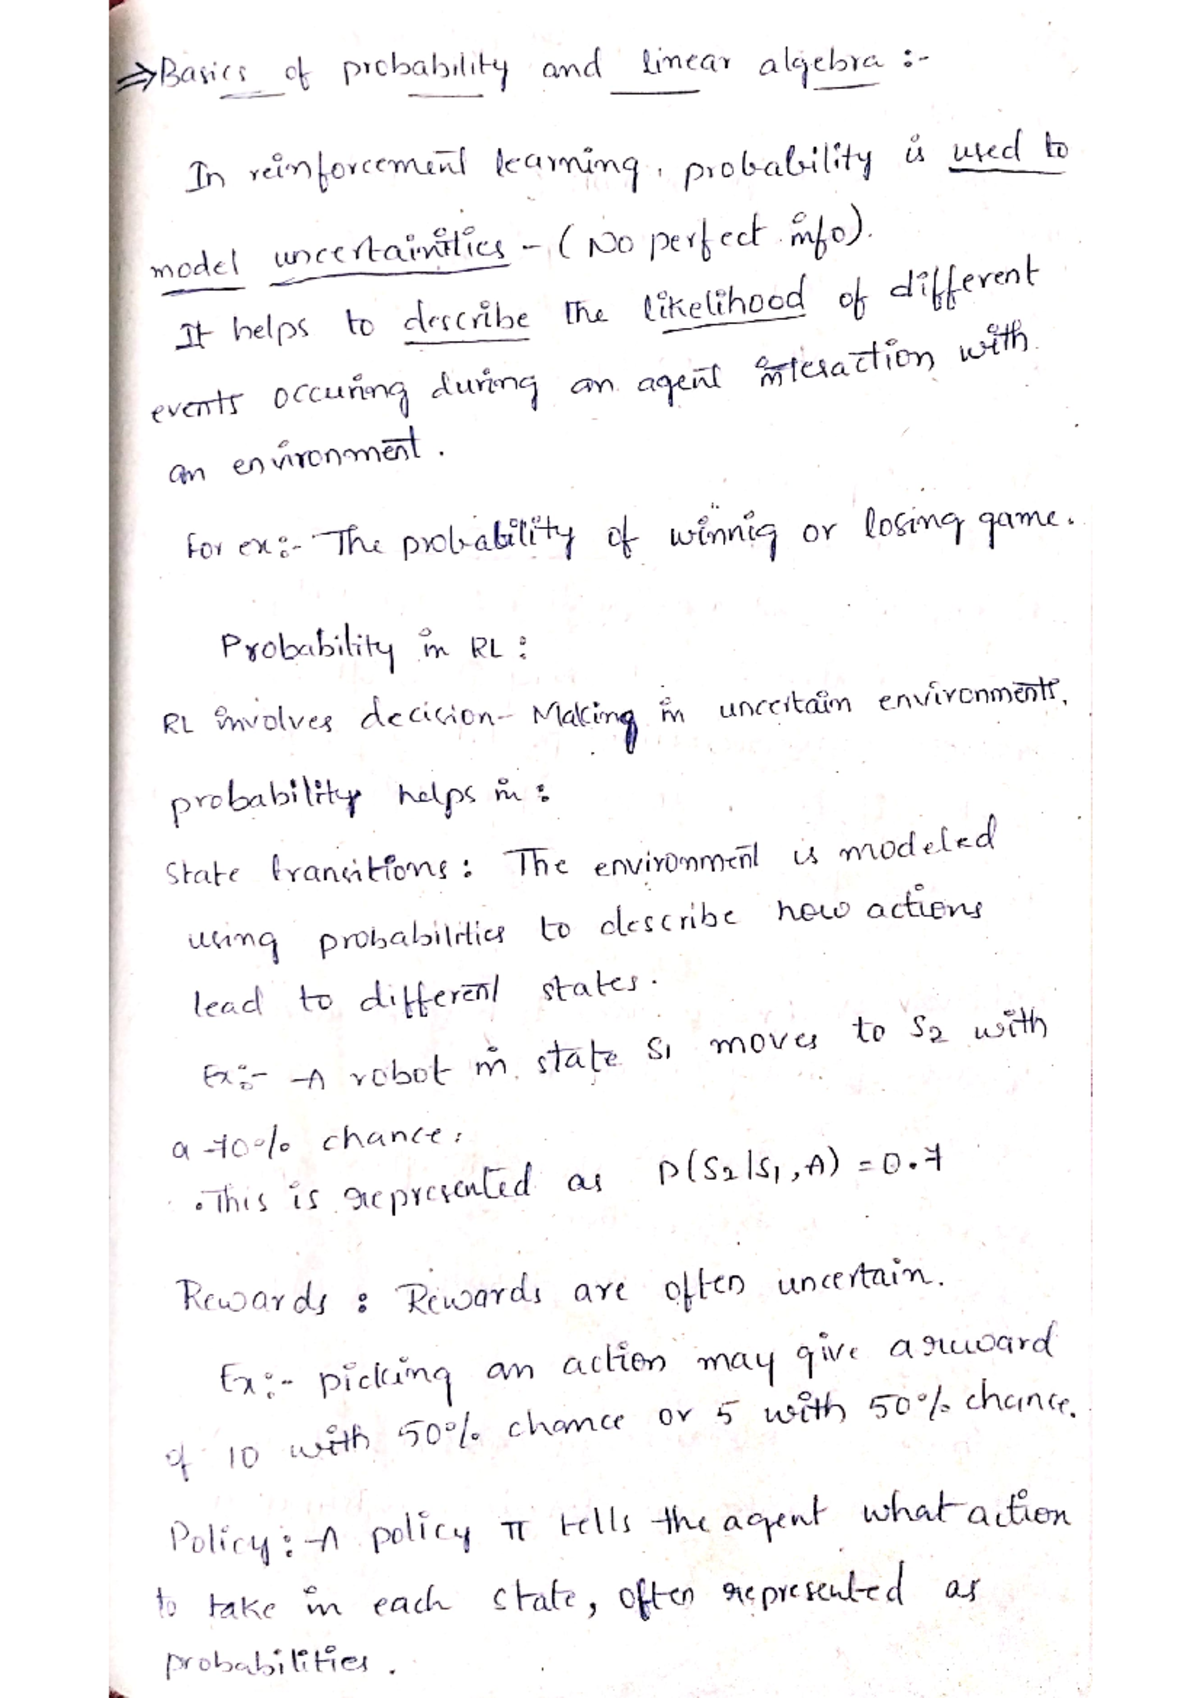 ⇒ Basics of probability and linear algebra :-
In reinforcement learning, probability is used to
model uncertainities - (No perfect info).
It helps to describe the likelihood of different
events occuring during an agent interaction with
an environment.
For ex:- The probability of winnig or losing game.
Probability in RL :
RL involves decision-Making in uncertain environments,
probability helps in :
State transitions : The environment is modeled
using probabilities to describe how actions
lead to different states.
Ex:- A robot in state S1 moves to S2 with
a 70% chance.
• This is represented as P(S2|S1, A) = 0.7
Rewards : Rewards are often uncertain.
Ex:- picking an action may give a reward
of 10 with 50% chance or 5 with 50% chance.
Policy : A policy π tells the agent what action
to take in each state, often represented as
probabilities.